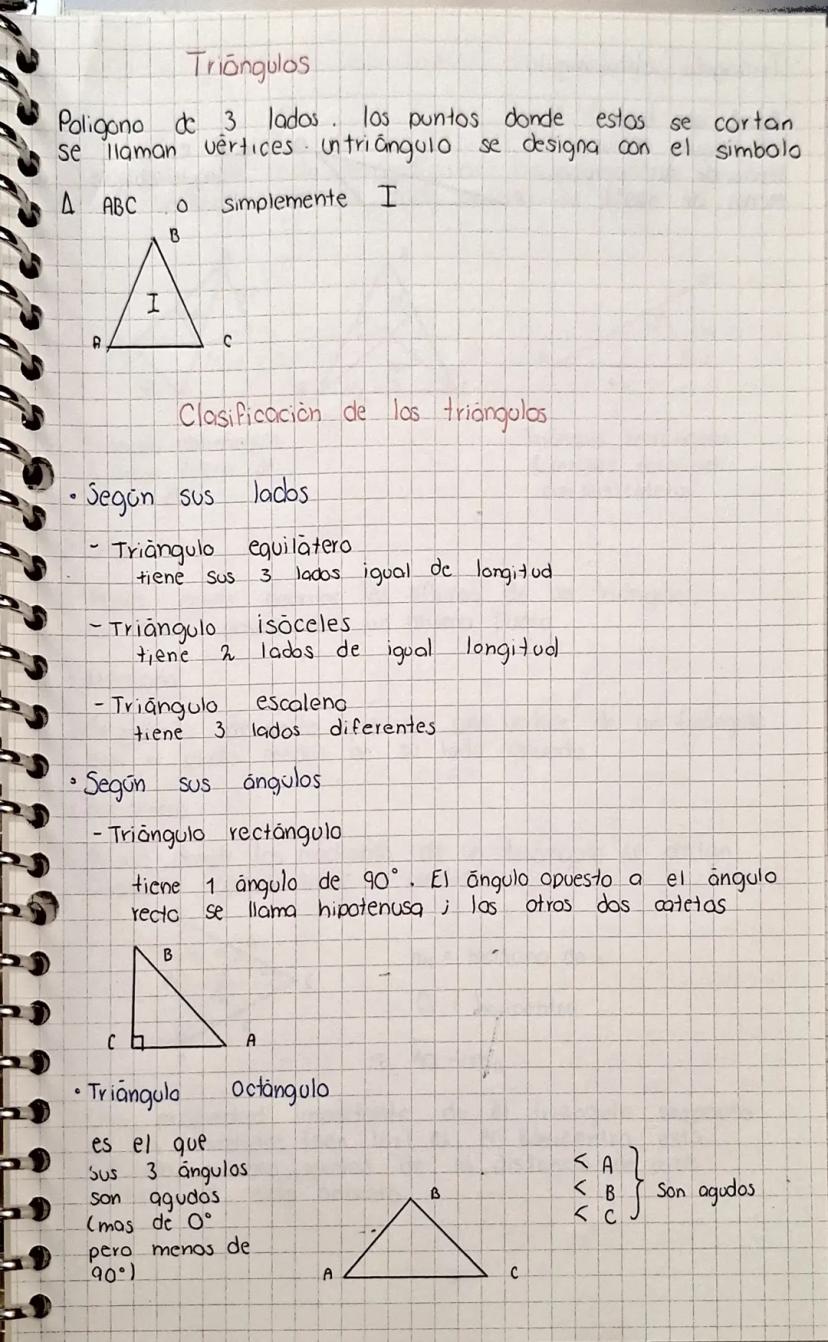 Triángulos
Poligono de 3 lados. los puntos donde estos se cortan
se llaman vértices. Un triángulo se designa con el simbolo
Δ ABC o simplemente I
B
I
A C
Clasificación de los triángulos
• Según sus lados
- Triángulo equilátero
tiene sus 3 lados igual de longitud
- Triángulo isóceles
tiene 2 lados de igual longitud
- Triángulo escaleno
tiene 3 lados diferentes
• Según sus ángulos
- Triángulo rectángulo
tiene 1 ángulo de 90°. El ángulo opuesto a el ángulo
recto se llama hipotenusa ; los otros dos catetos
B
C A
• Triángulo octángulo
es el que
sus 3 ángulos
son agudos
(mas de 0°
pero menos de
90°)
B
A C
< A
< B } Son agudos
< C